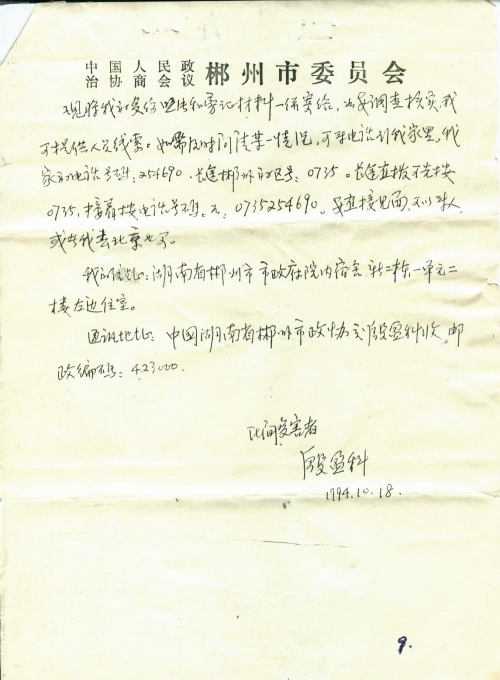 中国人民政治协商会议 郴州市委员会
现将我的受伤照片和旁证材料一併寄给,如要调查核实,我
可提供人员线索。如需及时问清某一情况,可打电话到我家里。我
家的电话号码:254690.长途郴州的区号:0735。长途直拨可先按
0735,接着按电话号码。即:0735254690。要直接见面,可以派人,
或者我去北京也可。
我的住址:湖南省郴州市市政府院内宿舍新二栋一单元二
楼左边住室。
通讯地址:中国湖南省郴州市政协交殷盈科收。邮
政编码:423000.
民间受害者
殷盈科
1994.10.18.
9.